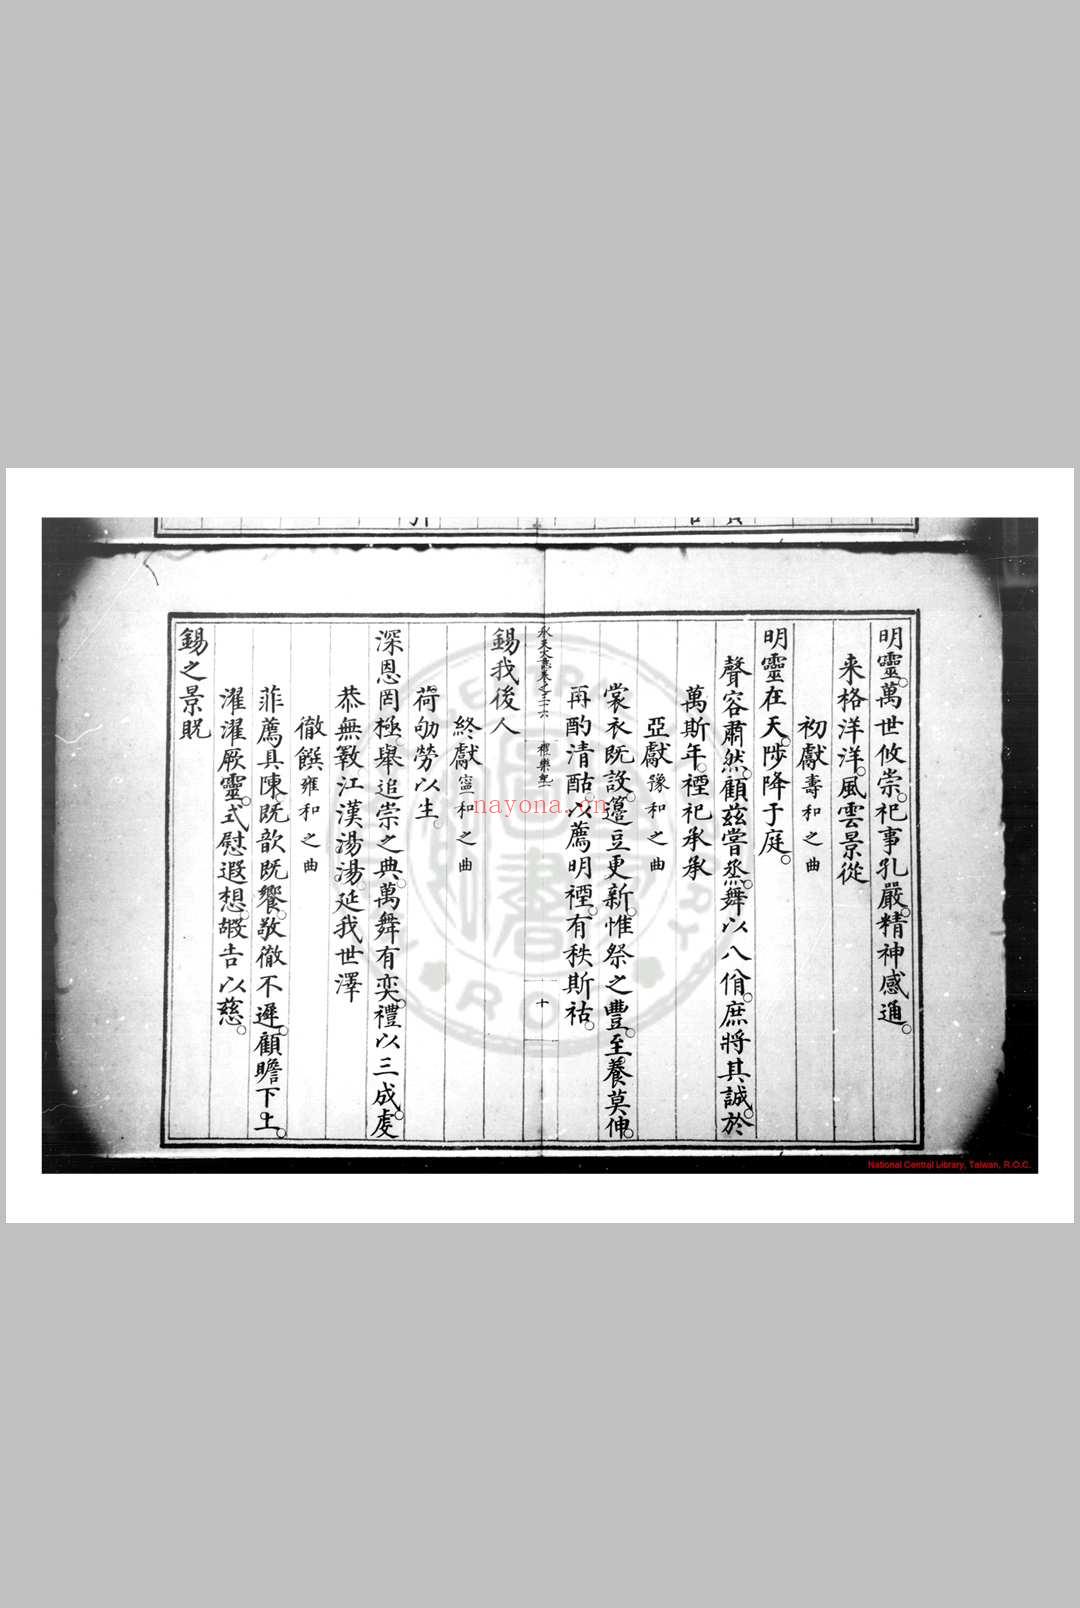 明靈。萬世攸崇。祀事孔嚴。精神感通。
来格洋洋。風雲景從
初獻壽和之曲
明靈在天。陟降于庭。
聲容肅然。顧茲嘗烝。舞以八佾。庶將其誠。於
萬斯年。禋祀承承
亞獻豫和之曲
裳衣既設。籩豆更新。惟祭之豐。至養莫伸。
再酌清酤。以薦明禋。有秩斯祜。
永天大誌卷之三十六 禮樂記一 十
錫我後人
終獻寧和之曲
荷劬勞以生。
深恩罔極。舉追崇之典。萬舞有奕。禮以三成。虔
恭無斁。江漢湯湯。延我世澤
徹饌雍和之曲
菲薦具陳。既歆既饗。敬徹不遲。顧瞻下上。
濯濯厥靈。式慰遐想。嘏告以慈。
錫之景貺
nayona.cn
National Central Library, Taiwan, R.O.C.